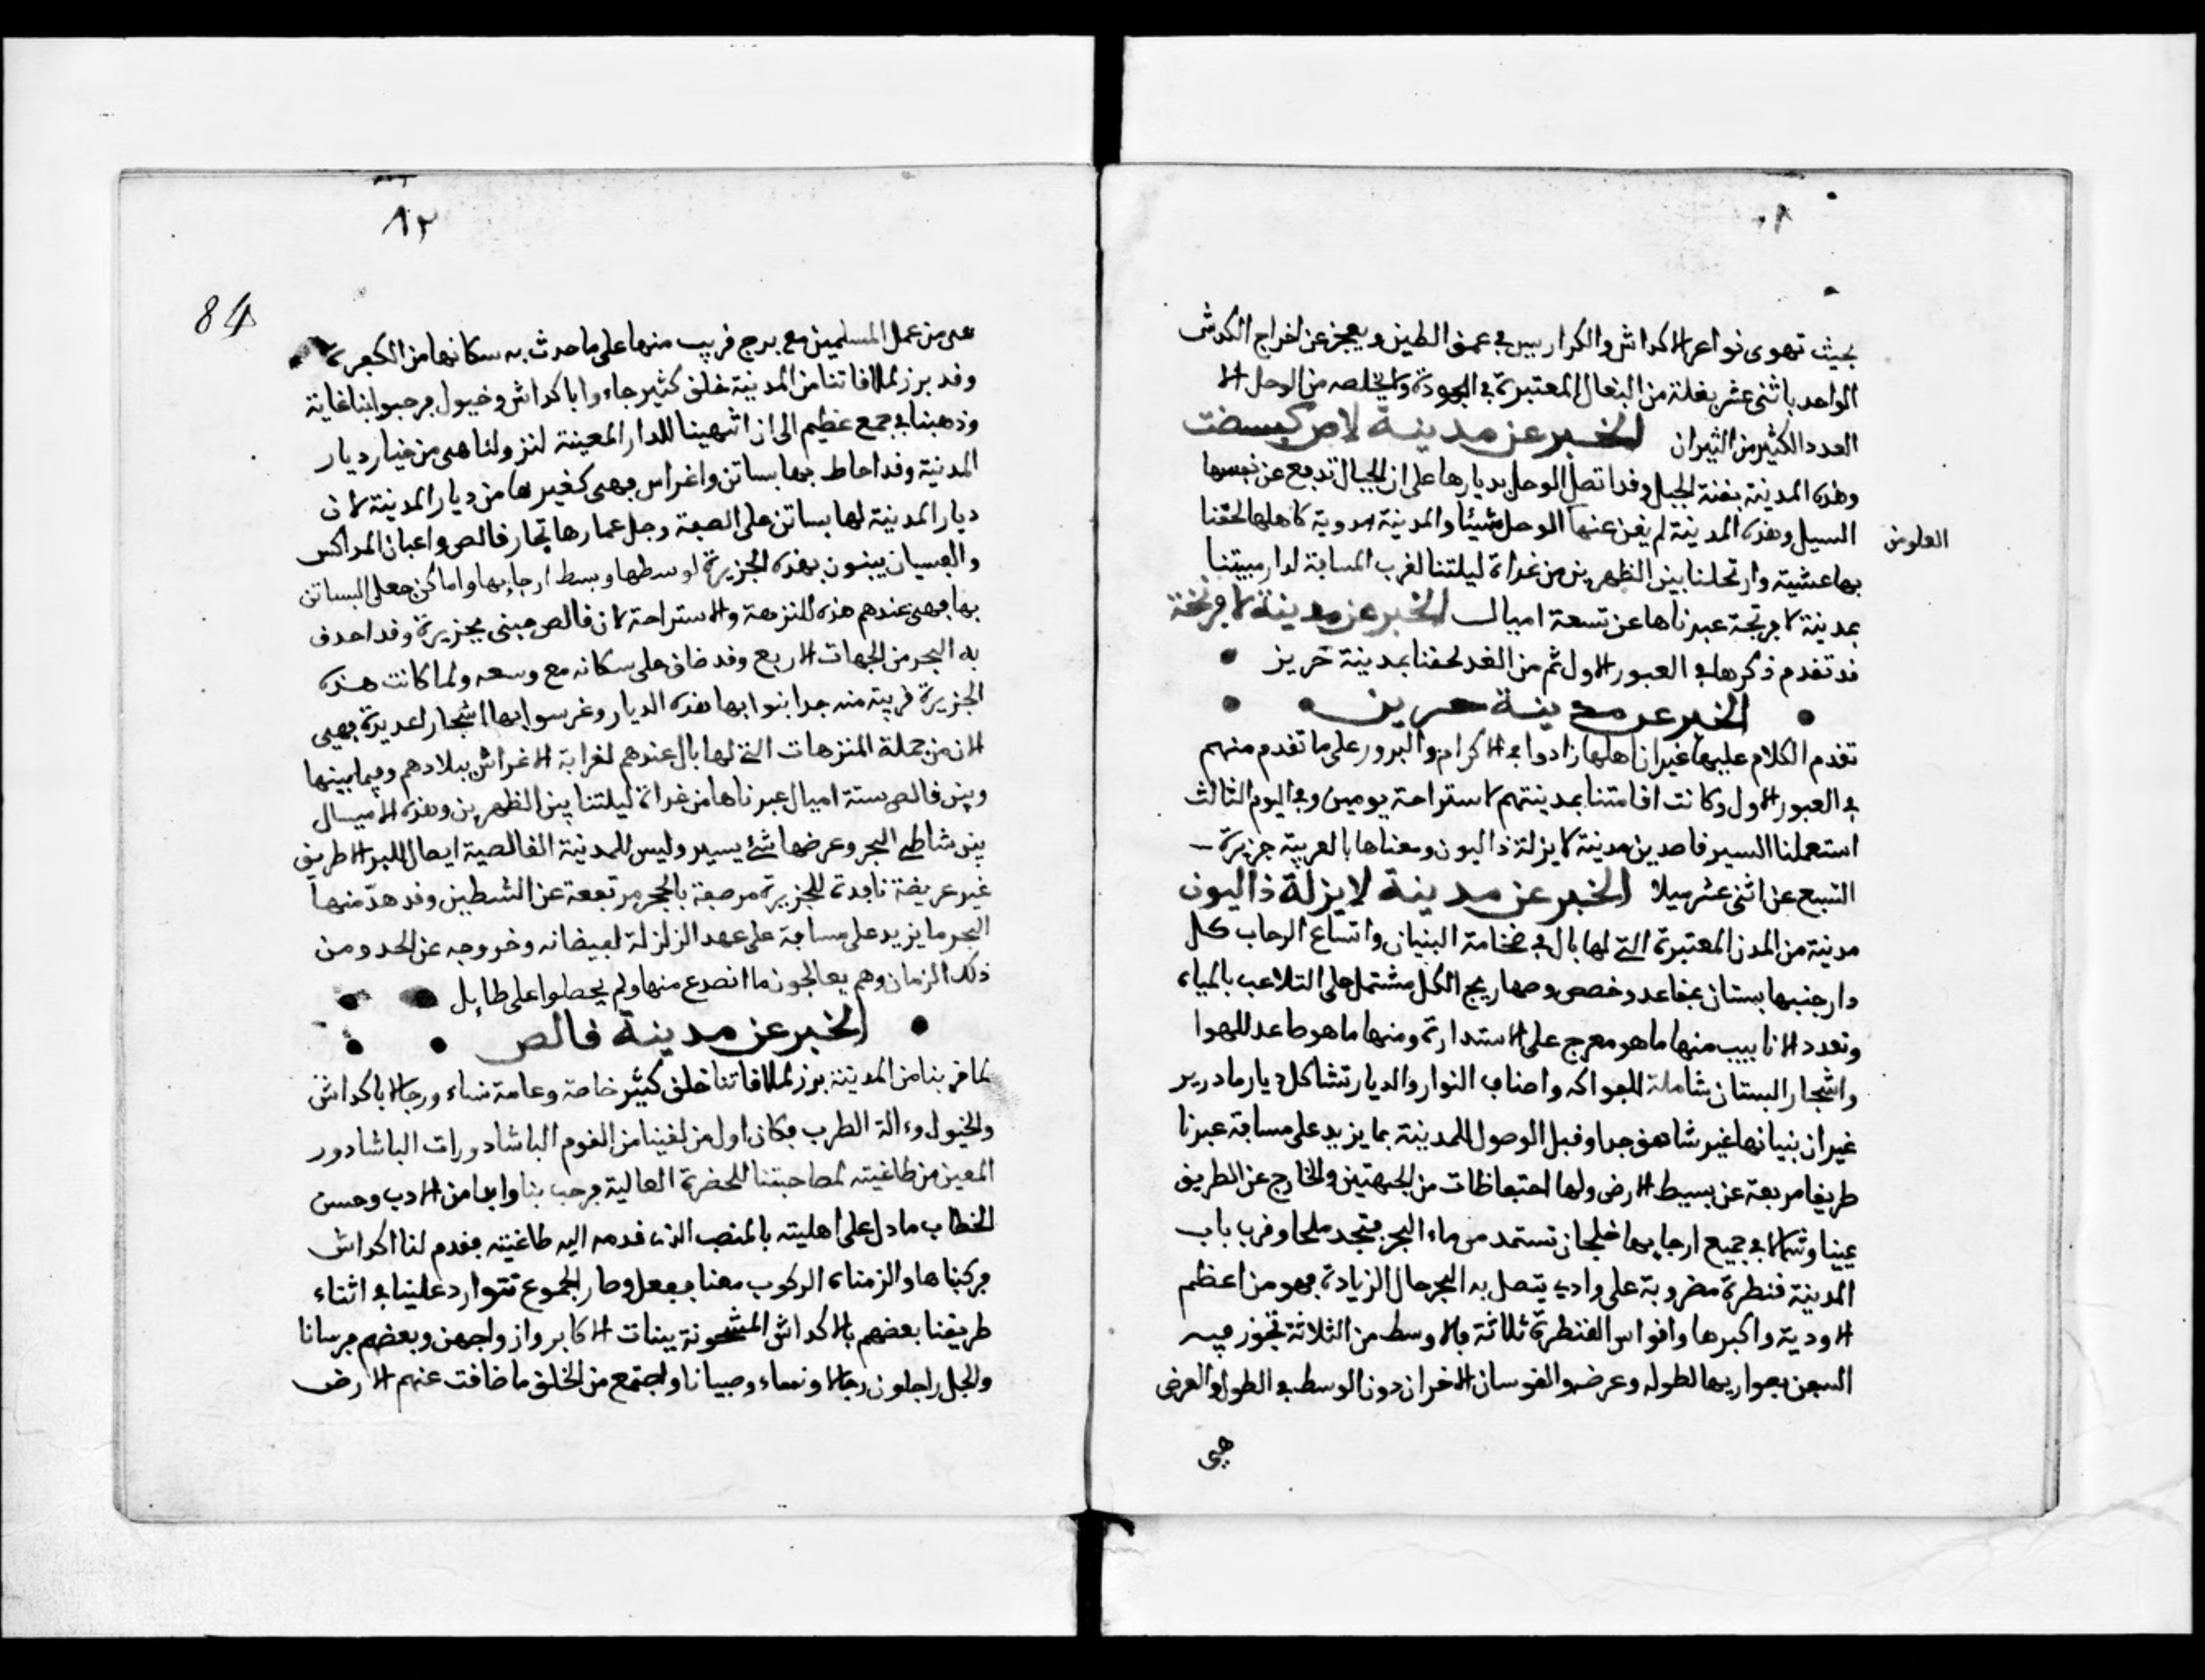 ٨٠
بحيث تهوى نواعر الاكداش والكراريس في عمق الطين ويعجز عن اخراج الكدش
الواحد باثنى عشر بغلة من البغال المعتبرة في الجودة ولا يخلصه من الوحل الا
العدد الكثير من الثيران الخبر عن مدينة لاص كبسضت
وهذه المدينة بقنة الجبل وقد اتصل الوحل بديارها على ان الجبال تدفع عن نفسها
السيل وهذه المدينة لم يغن عنها الوحل شيئا والمدينة بدوية كاهلها لحقنا
العلو من
بها عشية وارتحلنا بين الظهرين من غداة ليلتنا لقرب المسافة لدار مبيتنا
بمدينة لا فرنجة عبرناها عن تسعة اميال الخبر عن مدينة لا فرنجة
قد تقدم ذكرها في العبور الاول ثم من الغد لحقنا بمدينة خريز
الخبر عن مدينة خريز
تقدم الكلام عليها غير ان اهلها زادوا في الاكرام والبرور على ما تقدم منهم
في العبور الاول وكانت اقامتنا بمدينتهم لاستراحة يومين وفي اليوم الثالث
استعملنا السير قاصدين مدينة لايزلة ذاليون ومعناها بالعربية جزيرة
السبع عن اثنى عشر ميلا الخبر عن مدينة لايزلة ذاليون
مدينة من المدن المعتبرة التي لها بال في ضخامة البنيان واتساع الرحاب كل
دار جنبها بستان بمقاعد وخصص وصهاريج الكل مشتمل على التلاعب بالمياه
وتعدد الانابيب منها ما هو معرج على الاستدارة ومنها ما هو صاعد للهوا
واشجار البستان شاملة للفواكه واصناف النوار والديار تشاكل ديار مادرير
غير ان بنيانها غير شاهق جدا وقبل الوصول للمدينة بما يزيد على مسافة عبرنا
طريقا مربعة عن بسيط الارض ولها احتفاظات من الجهتين والخارج عن الطريق
يمينا وشمالا في جميع ارجايها خلجان تستمد من ماء البحر فتجمد ملحا وقرب باب
المدينة قنطرة مضروبة على وادي يتصل به البحر حال الزيادة فهو من اعظم
الاودية واكبرها واقواس القنطرة ثلاثة فالاوسط من الثلاثة تجوز فيه
السفن بصواريها لطوله وعرضه والقوسان الاخران دون الوسط في الطول والعرض
هي
٨٢
84
هي من عمل المسلمين مع برج قريب منها على ما حدث به سكانها من الكفرة
وقد برز لملاقاتنا من المدينة خلق كثير جاءوا باكداش وخيول فرحبوا بنا غاية
وذهبنا في جمع عظيم الى ان انتهينا للدار المعينة لنزولنا هي من خيار ديار
المدينة وقد احاط بها بساتن واغراس فهي كغيرها من ديار المدينة لان
ديار المدينة لها بساتن على الصفة وجل عمارها تجار قالص واعيان المراكس
والفسيان يبنون بهذه الجزيرة اوسطها وبسط ارجايها واماكن جعلى البساتن
بها فهي عندهم هذه للنزهة والاستراحة لان قالص مبنى بجزيرة وقد احدق
به البحر من الجهات الاربع وقد ضاق على سكانه مع وسعه ولما كانت هذه
الجزيرة قريبة منه جدا بنوا بها هذه الديار وغرسوا بها اشجارا عديدة فهي
الان من جملة المنتزهات التي لها بال عندهم لغرابة الاغراس ببلادهم وفيما بينها
وبين قالص ستة اميال عبرناها من غداة ليلتنا بين الظهرين وهذه الاميال
بين شاطي البحر وعرضها شئ يسير وليس للمدينة القالصية ايصال للبر الا طريق
غير عريضة نافدة للجزيرة مرصفة بالحجر مرتفعة عن الشطين وقد هدّ منها
البحر ما يزيد على مسافة على عهد الزلزلة لفيضانه وخروجه عن الحد ومن
ذلك الزمان وهم يعالجون ما انصدع منها ولم يحطوا على طايل
الخبر عن مدينة قالص
لما قربنا من المدينة برز لملاقاتنا خلق كثير خاصة وعامة نساء ورجالا باكداش
والخيول وءالة الطرب فكان اول من لقينا من القوم الباشادورات الباشادور
المعين من طاغيته لمصاحبتنا للحضرة العالية فرحب بنا وابدا من الادب وحسن
الخطاب ما دل على اهليته بالمنصب الذي قدمه اليه طاغيته فقدم لنا اكداش
فركبناها والزمناه الركوب معنا ففعل وصار الجموع تتوارد علينا في اثناء
طريقنا بعضهم بالاكداش المشحونة ببنات الاكابر وازواجهن وبعضهم فرسانا
والجل راجلون رجالا ونساء وصبيانا واجتمع من الخلق ما ضاقت عنهم الارض